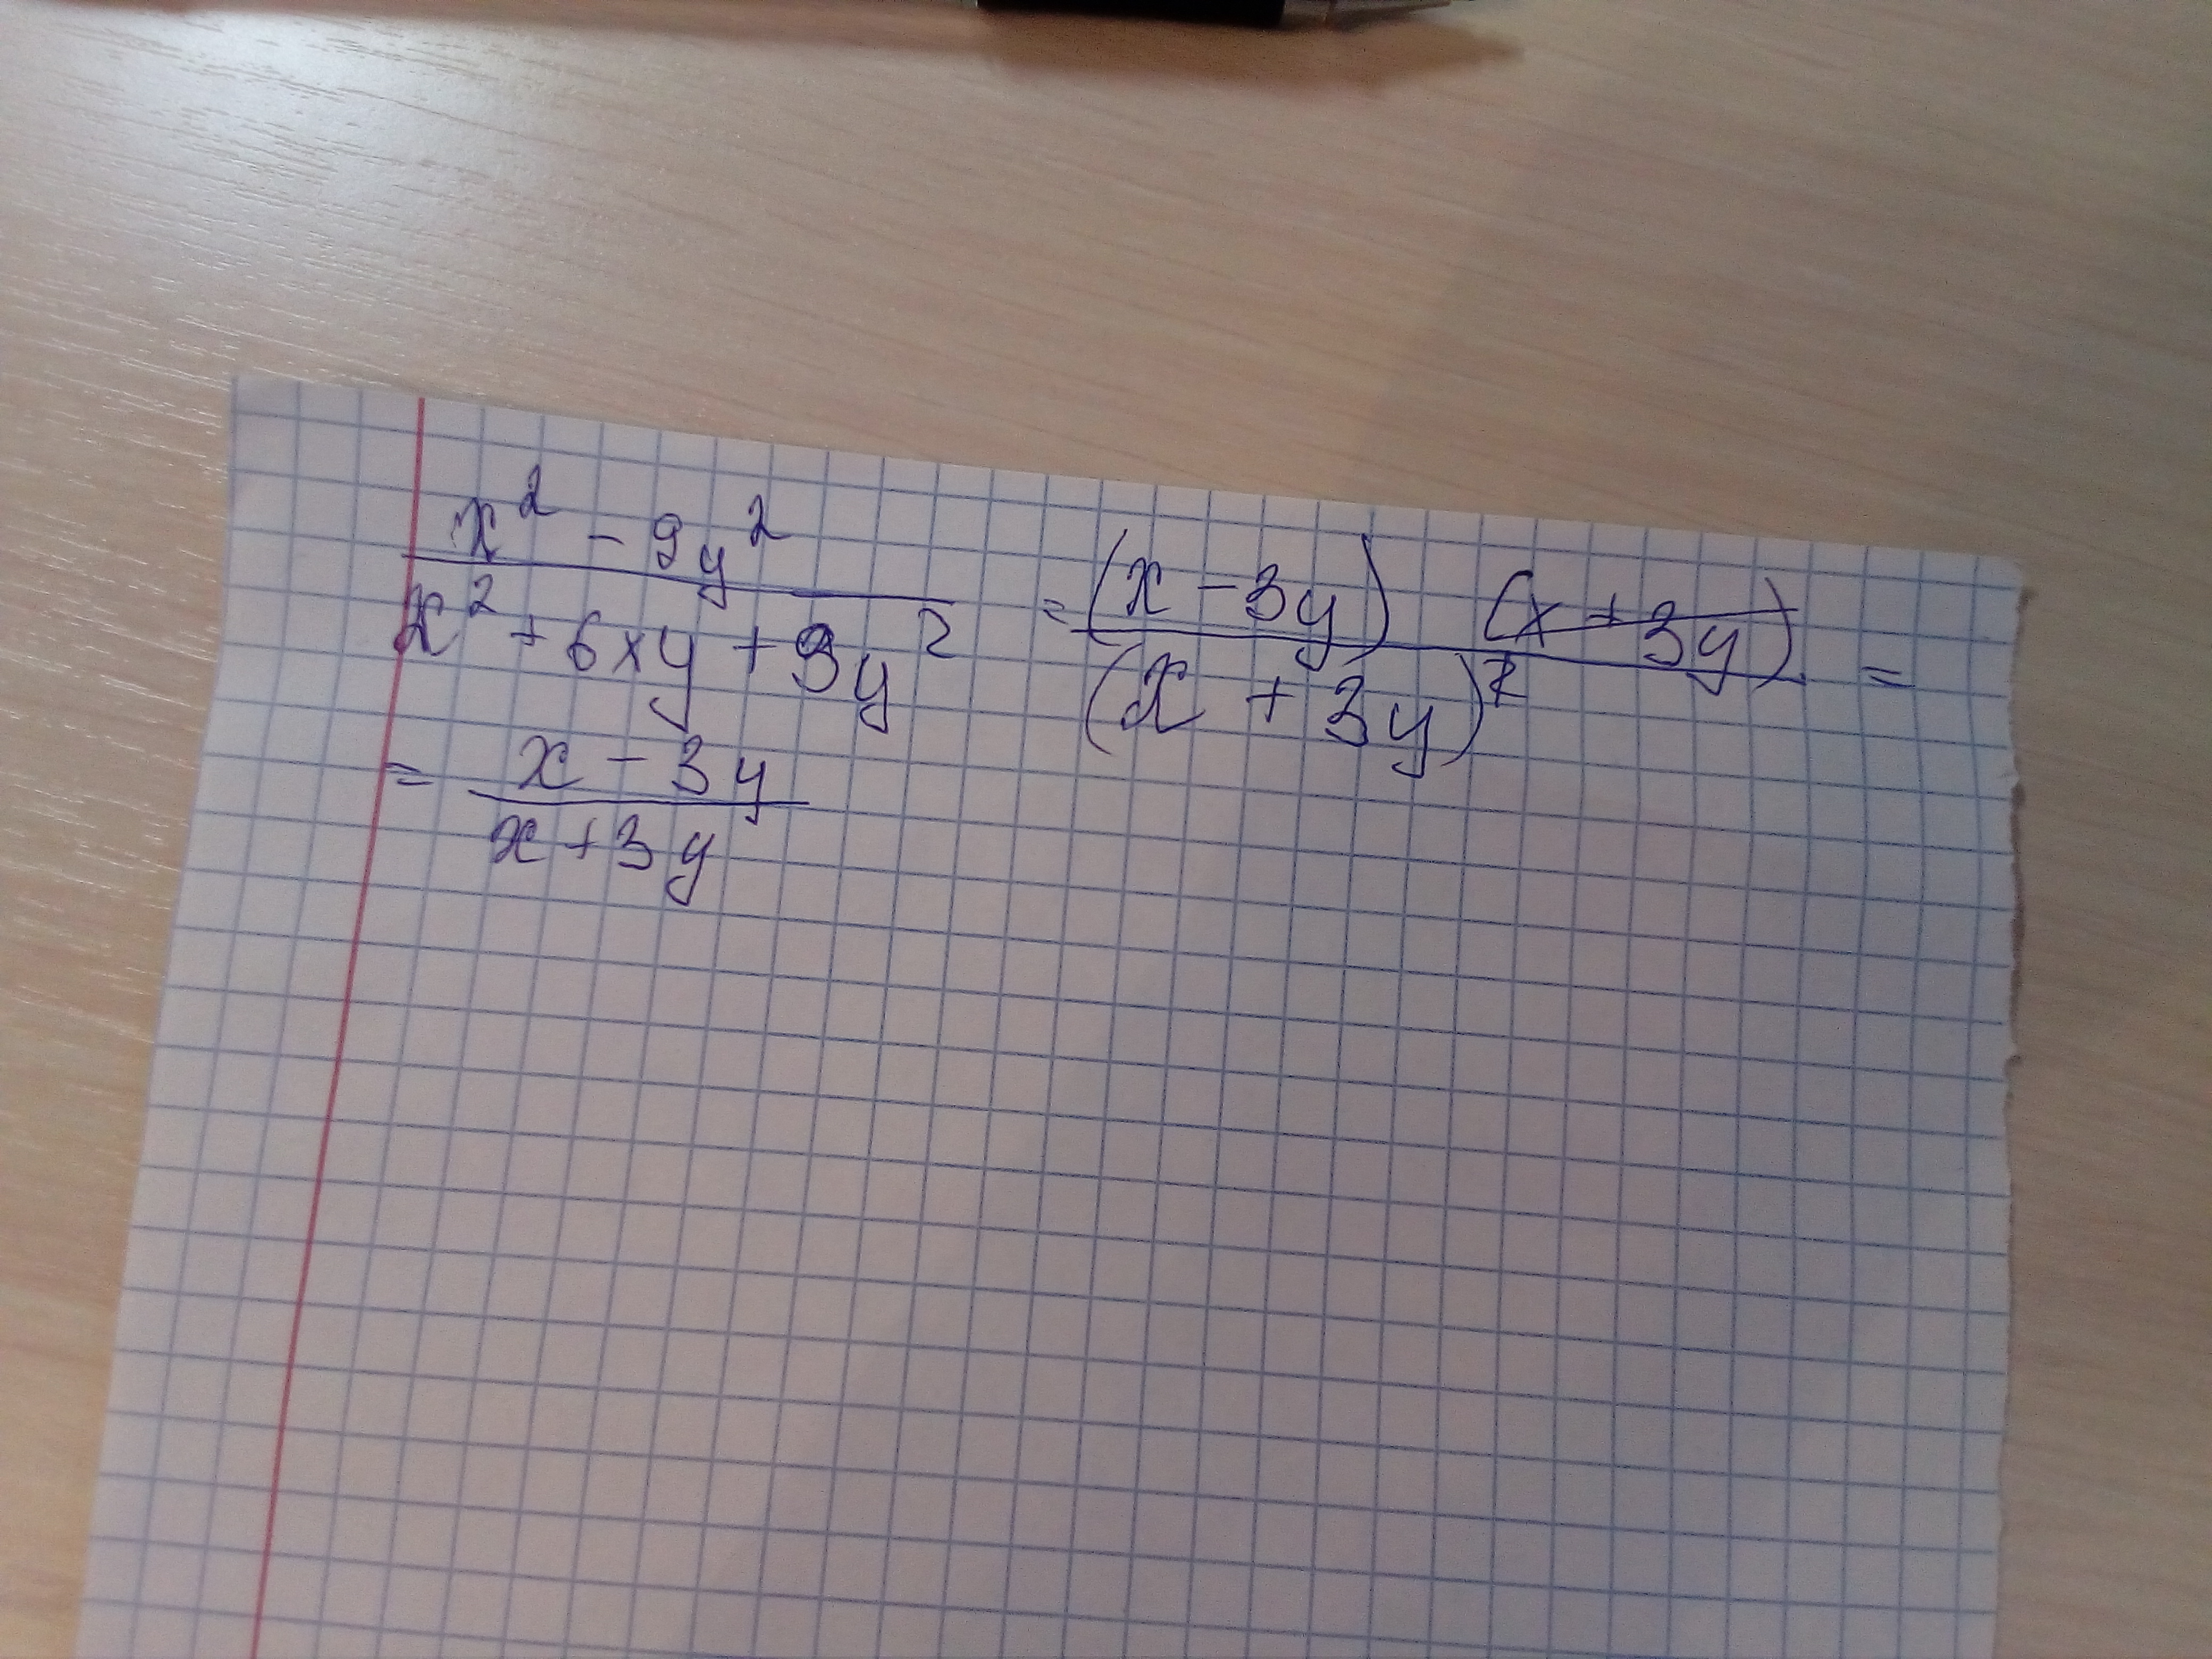 (x² - 9y²)/(x² + 6xy + 9y²) = ((x - 3y) (x + 3y))/((x + 3y)²) =
= (x - 3y)/(x + 3y)